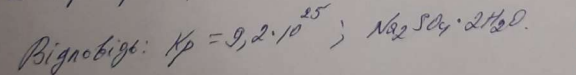 Відповідь: Kp = 9,2·10²⁵ ; Na₂SO₄·2H₂O.